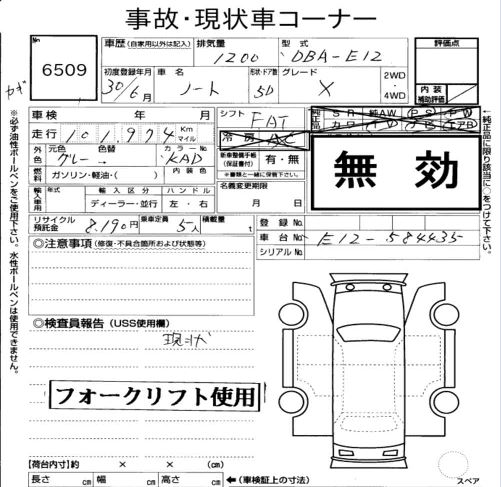 事故・現状車コーナー
No
6509
カギ
車歴 (自家用以外は記入)
排気量
1200
型式
DBA-E12
評価点
初度登録年月
30/6月
車名
ノート
形状・ドア数
5D
グレード
X
2WD
4WD
内装
補助評価
車検 年 月
走行 101,974 Km マイル
シフト
FAT
冷房 AC
純正品
SR 純AW PS PW
無効
外色
元色
グレー
色替
カラーNo
KAD
内装色
燃料
ガソリン・軽油・( )
新車整備手帳
(保証書付)
有・無
※書類と一緒に保管して下さい。
輸入車用
年式
輸入区分
ディーラー・並行
ハンドル
左・右
名義変更期限
月 日
リサイクル預託金
8.190円
乗車定員
5人
積載量
t
登録No.
車台No.
E12-584435
シリアルNo.
◎注意事項 (修復・不具合箇所および状態等)
◎検査員報告 (USS使用欄)
現状
フォークリフト使用
【荷台内寸】約 × × (cm)
長さ cm 幅 cm 高さ cm
(車検証上の寸法)
スペア
※必ず油性ボールペンをご使用下さい。水性ボールペンは使用できません。